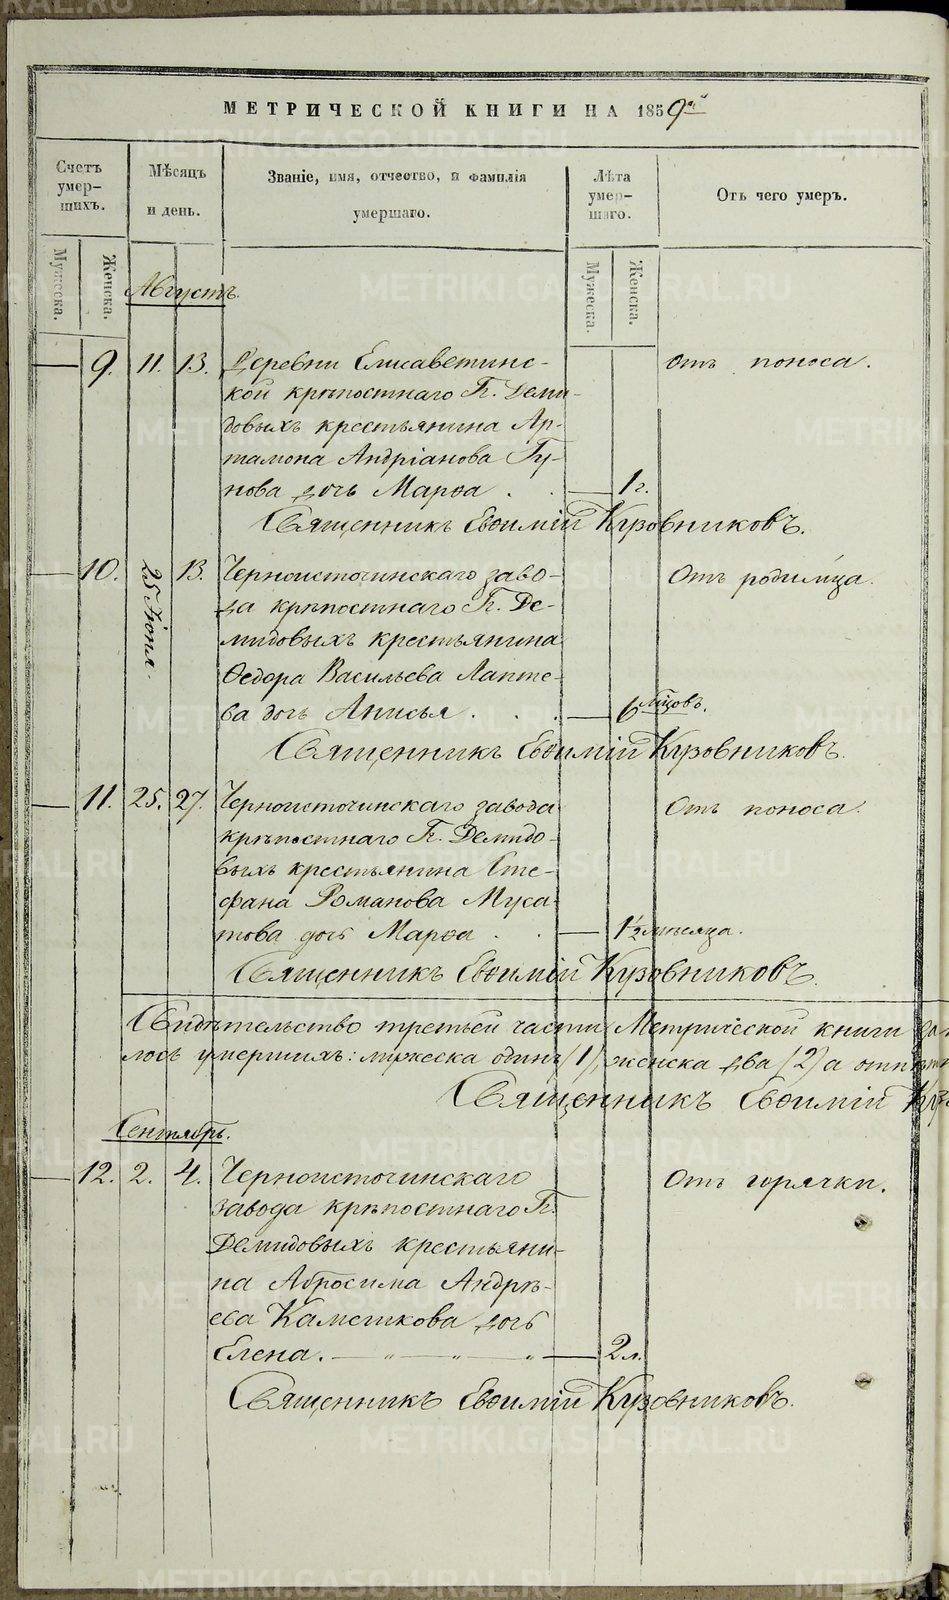 МЕТРИЧЕСКОЙ КНИГИ НА 1859й
Счетъ умер-шихъ.
Мѣсяцъ и день.
Званіе, имя, отчество, и фамилія умершаго.
Лѣта умер-шаго.
Отъ чего умеръ.
Мужеска. Женска.
Мужеска. Женска.
Августъ.
9. 11. 13. Деревни Елисаветинс- Отъ поноса.
кой крѣпостнаго Гг. Деми-
довыхъ крестьянина Ар-
тамона Андріанова Гу-
нова дочь Марѳа . . 1 г.
Священникъ Евѳимій Кузовниковъ.
10. 25 Іюля. 13. Черноисточинскаго заво- Отъ родимца.
да крѣпостнаго Гг. Де-
мидовыхъ крестьянина
Ѳедора Васильева Лапте-
ва дочь Анисья . . . 6 мѣсцовъ.
Священникъ Евѳимій Кузовниковъ.
11. 25. 27. Черноисточинскаго завода Отъ поноса.
крѣпостнаго Гг. Демидо-
выхъ крестьянина Сте-
фана Романова Муса-
това дочь Марѳа . . 1½ мѣсяца.
Священникъ Евѳимій Кузовниковъ.
Свидѣтельство третьей части Метрической книги
лось умершихъ: мужеска одинъ (1), женска два (2) а
Священникъ Евѳимій
Сентябрь.
12. 2. 4. Черноисточинскаго Отъ горячки.
завода крѣпостнаго Гг.
Демидовыхъ крестьяни-
на Абросима Андрѣ-
ева Камешкова дочь
Елена. — „ — „ — „ — 2 л.
Священникъ Евѳимій Кузовниковъ.
METRIKI.GASO-URAL.RU